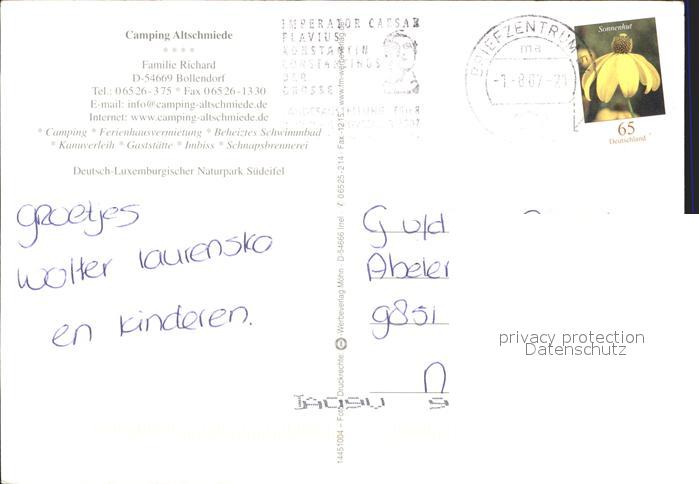 Camping Altschmiede
* * * *
Familie Richard
D-54669 Bollendorf
Tel.: 06526-375 * Fax 06526-1330
E-mail: info@camping-altschmiede.de
Internet: www.camping-altschmiede.de
* Camping * Ferienhausvermietung * Beheiztes Schwimmbad
* Kanuverleih * Gaststätte * Imbiss * Schnapsbrennerei
Deutsch-Luxemburgischer Naturpark Südeifel
IMPERATOR CAESAR
FLAVIUS
KONSTANTIN
CONSTANTINUS
DER
GROSSE
BRIEFZENTRUM
ma
Sonnenhut
65
Deutschland
groetjes
wolter laurensko
en kinderen.
Abeler
9851
N
privacy protection
Datenschutz